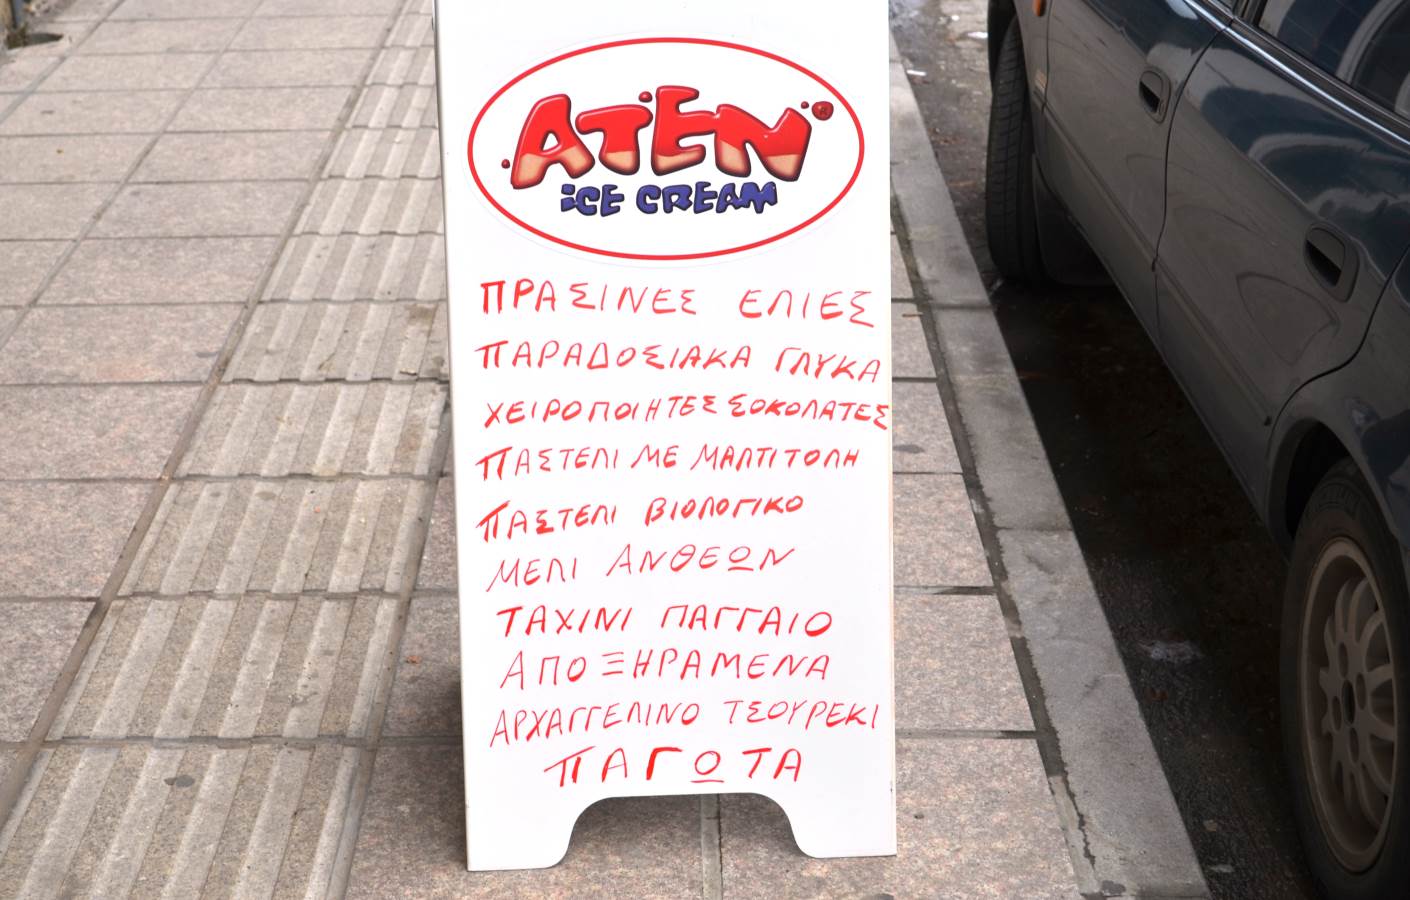 ATEN®
ICE CREAM
ΠΡΑΣΙΝΕΣ ΕΛΙΕΣ
ΠΑΡΑΔΟΣΙΑΚΑ ΓΛΥΚΑ
ΧΕΙΡΟΠΟΙΗΤΕΣ ΣΟΚΟΛΑΤΕΣ
ΠΑΣΤΕΛΙ ΜΕ ΜΑΛΤΙΤΟΛΗ
ΠΑΣΤΕΛΙ ΒΙΟΛΟΓΙΚΟ
ΜΕΛΙ ΑΝΘΕΩΝ
ΤΑΧΙΝΙ ΠΑΓΓΑΙΟ
ΑΠΟΞΗΡΑΜΕΝΑ
ΑΡΧΑΓΓΕΛΙΝΟ ΤΣΟΥΡΕΚΙ
ΠΑΓΩΤΑ